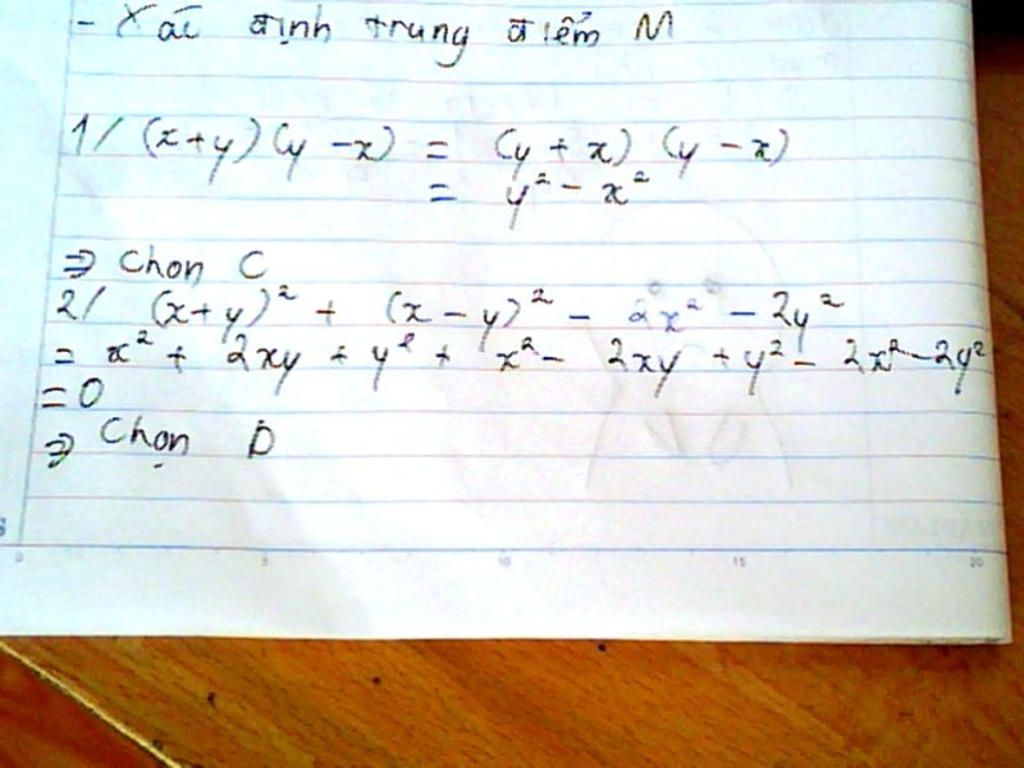 - Xác định trung điểm M
1/ (x+y)(y-x) = (y+x)(y-x)
= y² - x²
⇒ Chọn C
2/ (x+y)² + (x-y)² - 2x² - 2y²
= x² + 2xy + y² + x² - 2xy + y² - 2x² - 2y²
= 0
⇒ Chọn D
0 5 10 15 20